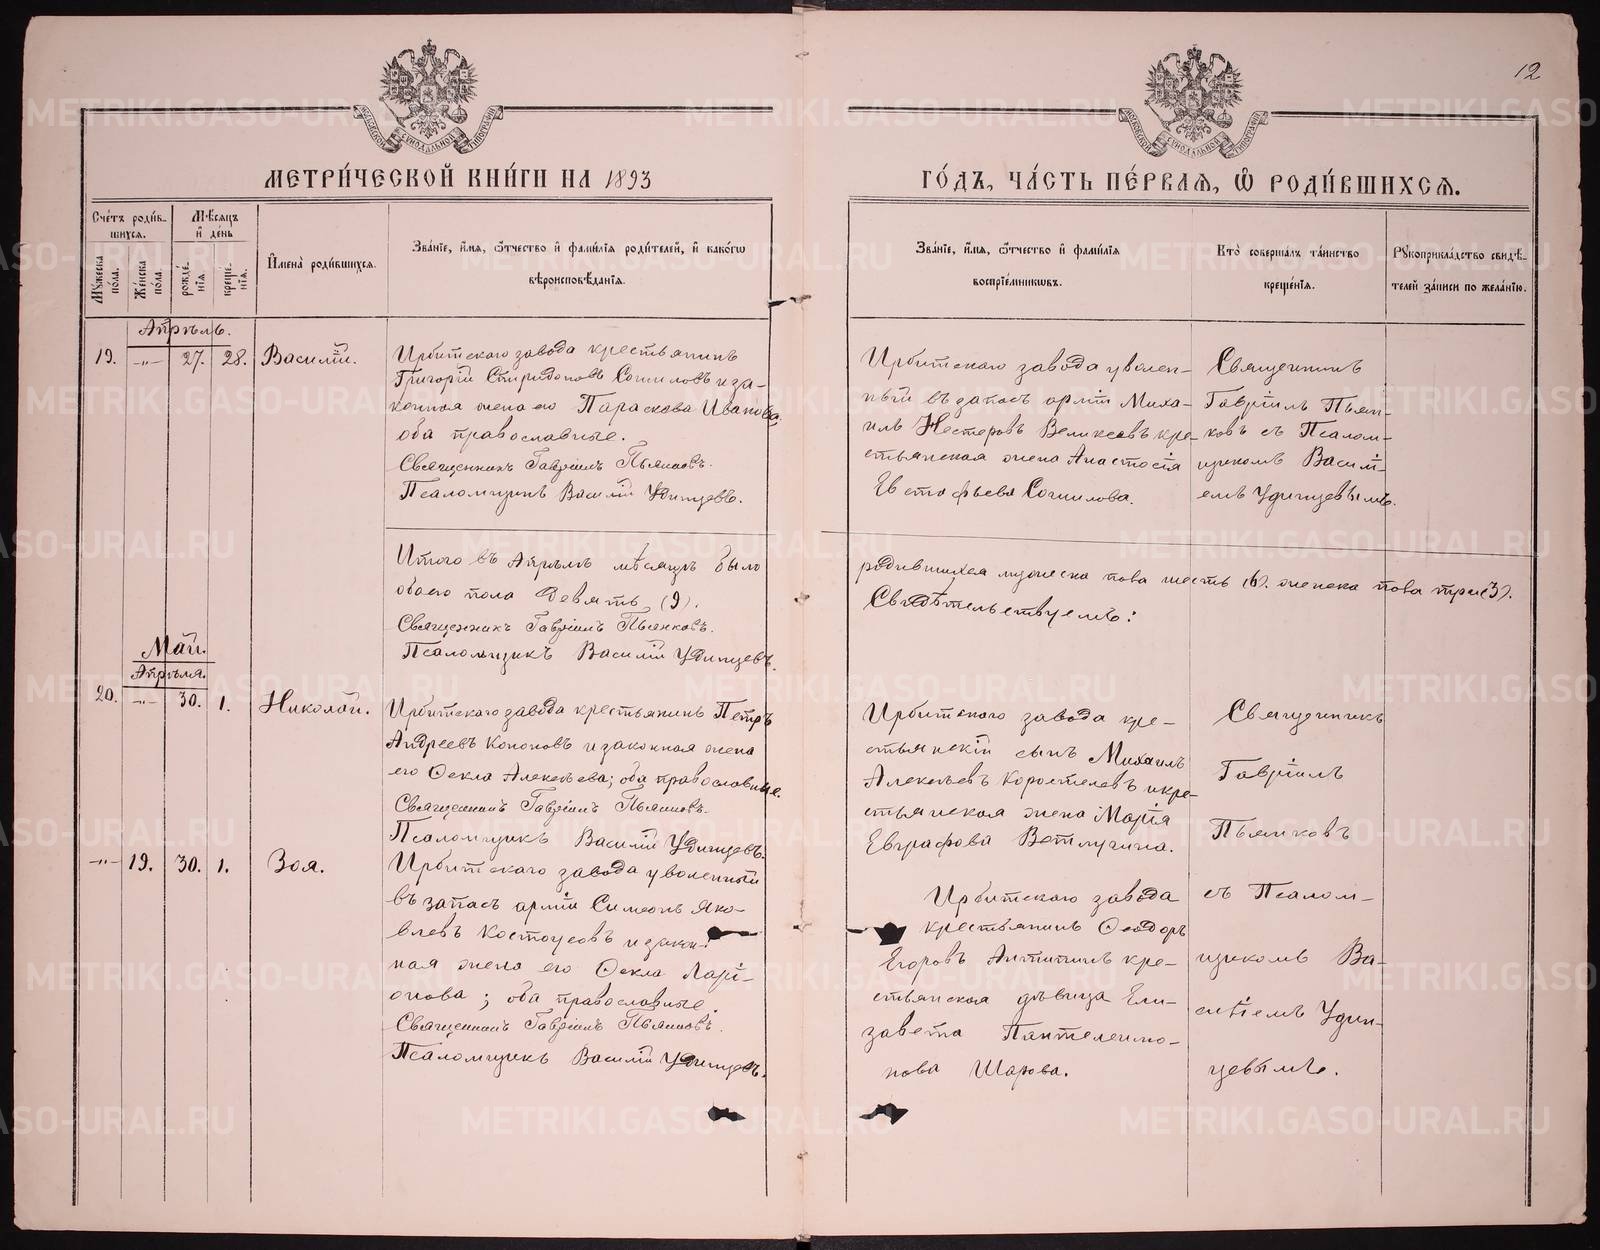 12
МОСКОВСКОЙ СИНОДАЛЬНОЙ ТИПОГРАФІИ
МОСКОВСКОЙ СИНОДАЛЬНОЙ ТИПОГРАФІИ
МЕТРИ́ЧЕСКОЙ КНИ́ГИ НА 1893
ГО́ДЪ, ЧА́СТЬ ПЕ́РВАЯ, Ѡ РОДИ́ВШИХСЯ.
Сче́тъ роди́вшихся.
Мꙋ́жеска по́ла.
Же́нска по́ла.
Мѣ́сяцъ и де́нь
рожде́нїя.
креще́нїя.
Имена̀ роди́вшихся.
Зва́нїе, и́мя, ѻ́тчество и фами́лїя роди́телей, и како́гѡ
вѣроисповѣ́данїя.
Зва́нїе, и́мя, ѻ́тчество и фами́лїя
воспрїе́мниковъ.
Кто̀ соверша́лъ та́инство
креще́нїя.
Рꙋкоприкла́дство свидѣ́-
телей за́писи по жела́нїю.
Апрѣль.
19. -"- 27. 28. Василій.
Ирбитскаго завода крестьянинъ
Григорій Спиридоновъ Сошиловъ и за-
конная жена его Параскова Иванова,
оба православные.
Священникъ Гавріилъ Пьянковъ.
Псаломщикъ Василій Удинцевъ.
Ирбитскаго завода уволен-
ный въ запасъ арміи Миха-
илъ Нестеровъ Великсевъ кре-
стьянская жена Анастасія
Евстафьева Сошилова.
Священникъ
Гавріилъ Пьян-
ковъ съ Псалом-
щикомъ Василі-
емъ Удинцевымъ.
Итого въ Апрѣлѣ мѣсяцѣ было
обоего пола девять (9).
Священникъ Гавріилъ Пьянковъ.
Псаломщикъ Василій Удинцевъ.
родившихся мужеска пола шесть (6). женска пола три (3).
Свидѣтельствуемъ:
Май.
Апрѣля.
20. -"- 30. 1. Николай.
Ирбитскаго завода крестьянинъ Петръ
Андреевъ Кононовъ и законная жена
его Ѳекла Алексѣева; оба православные.
Священникъ Гавріилъ Пьянковъ.
Псаломщикъ Василій Удинцевъ.
Ирбитскаго завода кре-
стьянскій сынъ Михаилъ
Алексѣевъ Коростелевъ и кре-
стьянская жена Марія
Евграфова Ветлугина.
Священникъ
Гавріилъ
Пьянковъ
-"- 19. 30. 1. Зоя.
Ирбитскаго завода уволенный
въ запасъ арміи Симеонъ Яко-
влевъ Костоусовъ и закон-
ная жена его Ѳекла Ларі-
онова; оба православные.
Священникъ Гавріилъ Пьянковъ.
Псаломщикъ Василій Удинцевъ.
Ирбитскаго завода
крестьянинъ Ѳеодоръ
Егоровъ Антипинъ кре-
стьянская дѣвица Ели-
завета Пантелеимо-
нова Шарова.
съ Псалом-
щикомъ Ва-
силіемъ Удин-
цевымъ.
METRIKI.GASO-URAL.RU